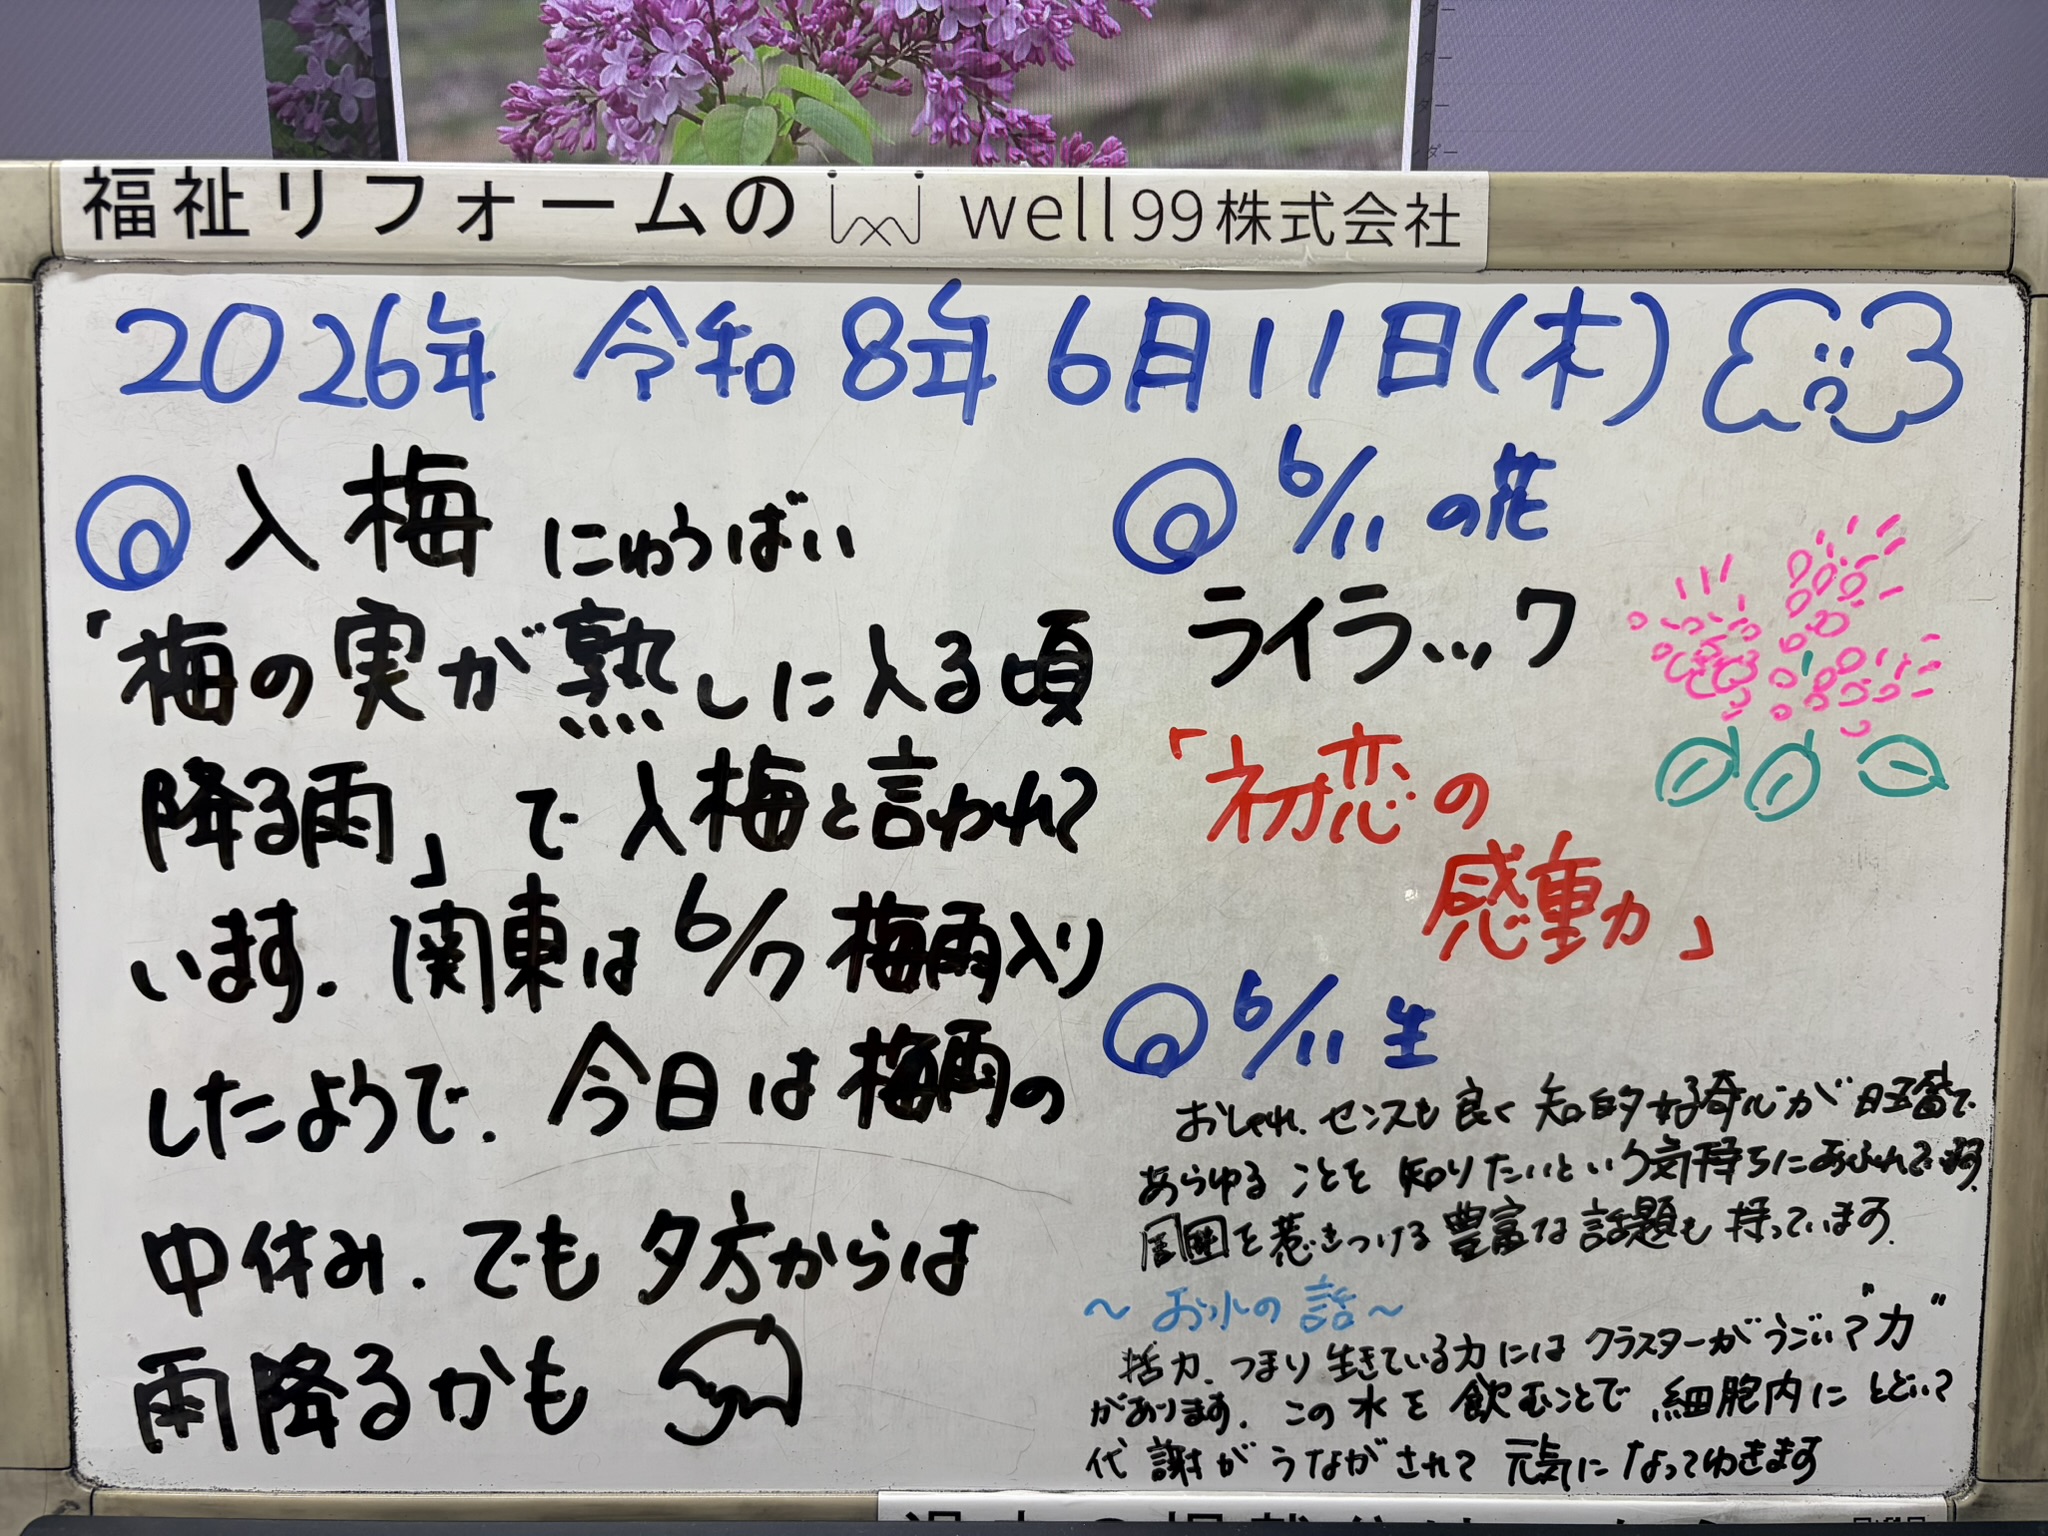 福祉リフォームの well99株式会社
2026年 令和8年 6月11日(木)
入梅 にゅうばい
「梅の実が熟しに入る頃
降る雨」で入梅と言われて
います. 関東は6/7梅雨入り
したようで. 今日は梅雨の
中休み. でも夕方からは
雨降るかも
6/11の花
ライラック
「初恋の
感動」
6/11生
おしゃれ. センスも良く知的好奇心が旺盛で.
あらゆることを知りたいという気持ちにあふれています.
周囲を惹きつける豊富な話題も持っています.
～お水の話～
活力. つまり生きている力にはクラスターがうごいて"力"
があります. この水を飲むことで細胞内にとどいて
代謝がうながされて元気になってゆきます